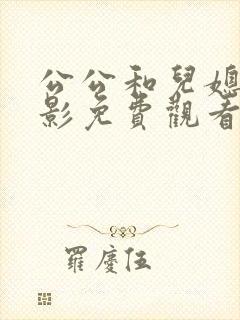 公公和兒媳
影免費觀看
羅慶伍